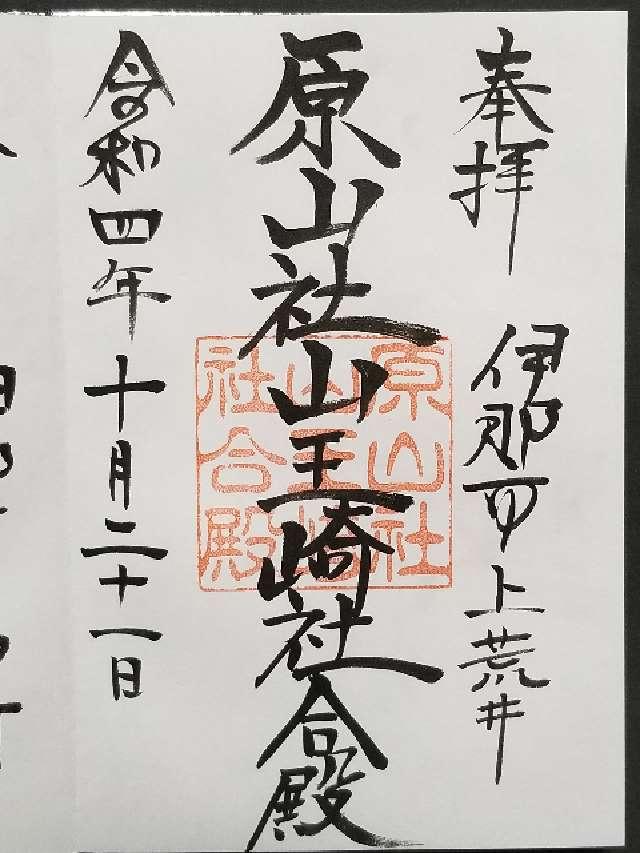 奉拝
伊那市上荒井
原山社山王崎社合殿
原山社
山王崎
社合殿
令和四年十月二十一日